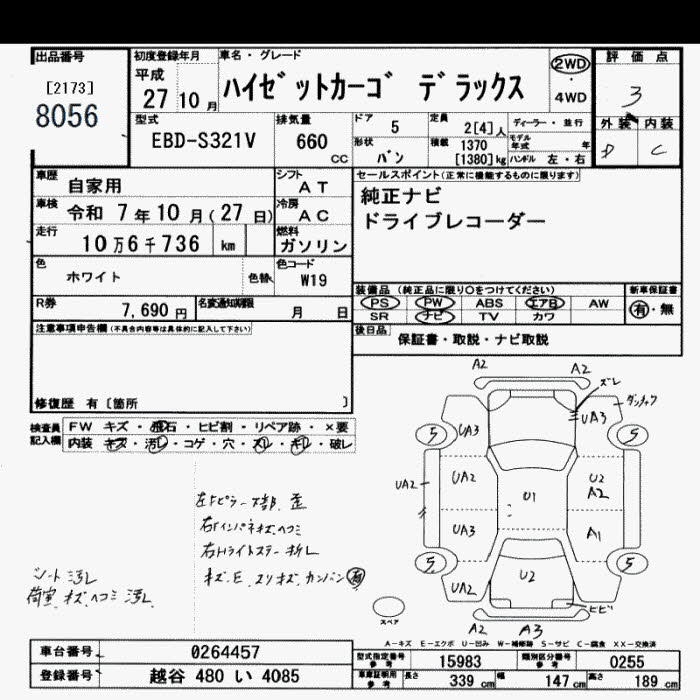 出品番号
[2173]
8056
初度登録年月
平成
27 10 月
車名・グレード
ハイゼットカーゴ デラックス
2WD
・
4WD
評価点
3
外装 内装
D C
型式
EBD-S321V
排気量
660
CC
ドア
5
定員
2[4]人
ディーラー・並行
形状
バン
積載
1370
[1380]kg
モデル年式 年
ハンドル 左・右
車歴
自家用
シフト
AT
車検
令和 7年10月(27日)
冷房
AC
走行
10万6千736 km
燃料
ガソリン
色
ホワイト
色替
色コード
W19
R券
7,690円
名変通知期限
月 日
セールスポイント(正常に機能するものに限ります)
純正ナビ
ドライブレコーダー
装備品 (純正品に限り○をつけてください)
PS PW ABS エアB AW
SR ナビ TV カワ
新車保証書
有・無
後日品
保証書・取説・ナビ取説
注意事項申告欄(不具合内容等は具体的に記入して下さい)
修復歴 有[箇所 ]
検査員
記入欄
FW キズ・飛石・ヒビ割・リペア跡・×要
内装 キズ・汚レ・コゲ・穴・スレ・キレ・破レ
A2 A2
ズレ
UA3 UA3
5 5
UA2
UA2
U1
U2
A2
UA3
A1
5 5
UA2
U2
ヒビ
A2 A3
スペア
シート 汚レ
荷室 キズ ヘコミ 汚レ
A-キズ E-エクボ U-凹み W-補修跡 S-サビ C-腐食 XX-交換済
車台番号
0264457
登録番号
越谷 480 い 4085
型式指定番号
参考
15983
類別区分番号
参考
0255
車庫証明用
参考
長さ
339 cm
幅
147 cm
高さ
189 cm